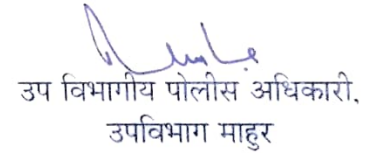 उप विभागीय पोलीस अधिकारी,
उपविभाग माहुर